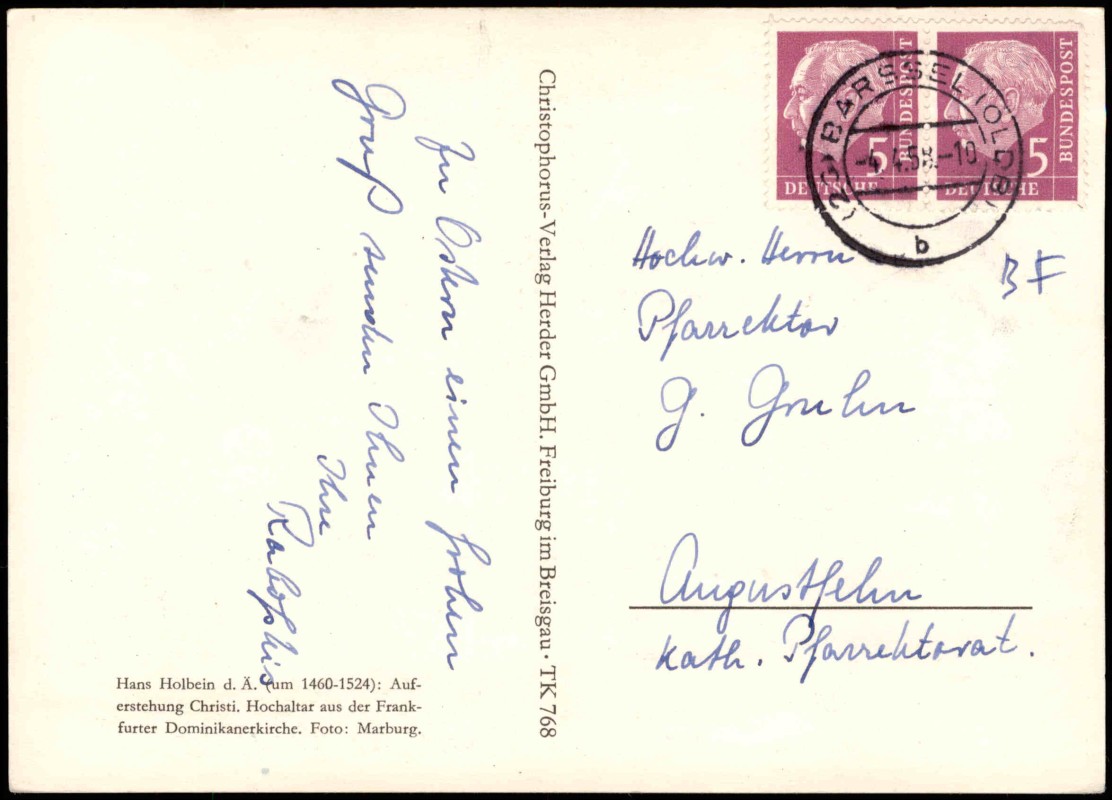 Zu Ostern einen frohen
Gruß senden Ihnen
Ihre
Hans Holbein d. Ä. (um 1460-1524): Auf-
erstehung Christi. Hochaltar aus der Frank-
furter Dominikanerkirche. Foto: Marburg.
Christophorus-Verlag Herder GmbH. Freiburg im Breisgau · TK 768
5
BUNDESPOST
DEUTSCHE
5
BUNDESPOST
DEUTSCHE
(23) BARSSEL (OLDB)
-4. 4.58.-10
b
Hochw. Herrn
Pfarrektor
G. Gruhn
Augustfehn
Kath. Pfarrektorat.